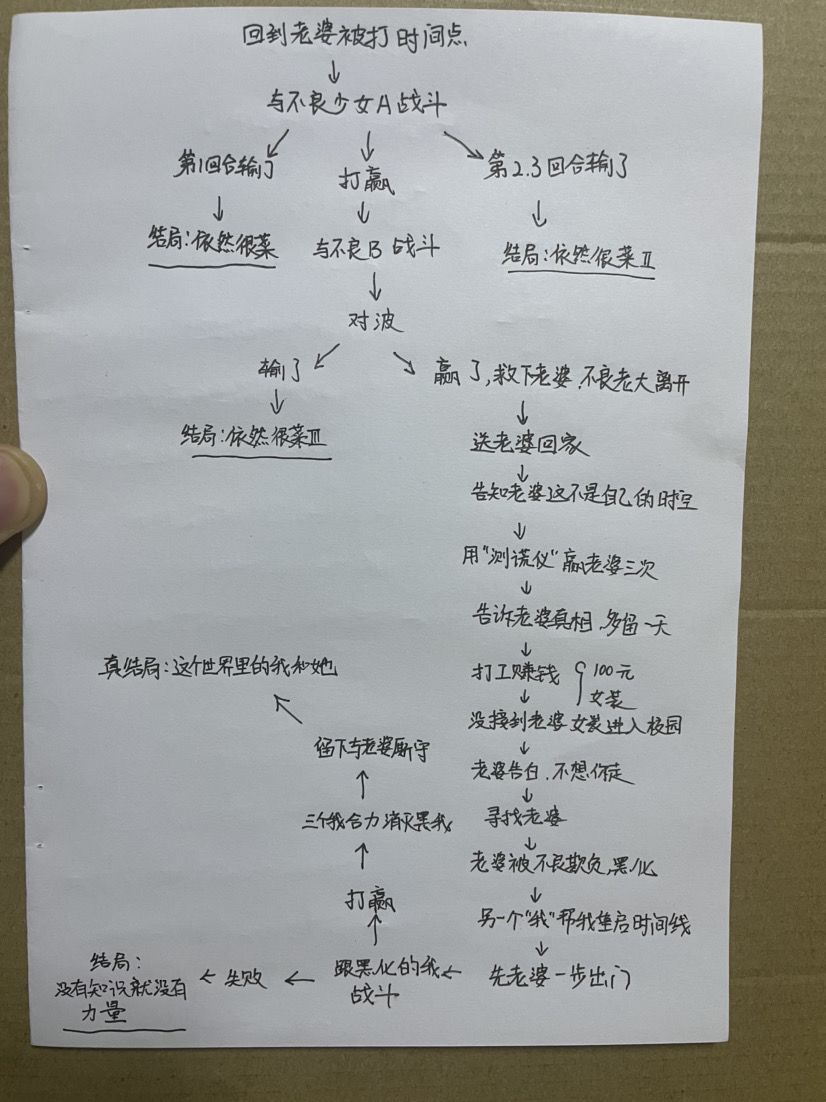 回到老婆被打时间点
与不良少女A战斗
第1回合输了
打赢
第2.3回合输了
结局:依然很菜
与不良B战斗
结局:依然很菜Ⅱ
对波
输了
赢了,救下老婆.不良老大离开
结局:依然很菜Ⅲ
送老婆回家
告知老婆这不是自己的时空
用“测谎仪”赢老婆三次
告诉老婆真相.多留一天
打工赚钱
100元
女装
没接到老婆 女装进入校园
老婆告白.不想你走
寻找老婆
老婆被不良欺负.黑化
另一个“我”帮我重启时间线
先老婆一步出门
跟黑化的我
战斗
失败
结局:
没有知识就没有
力量
打赢
三个我合力消灭黑我
留下与老婆厮守
真结局:这个世界里的我和她